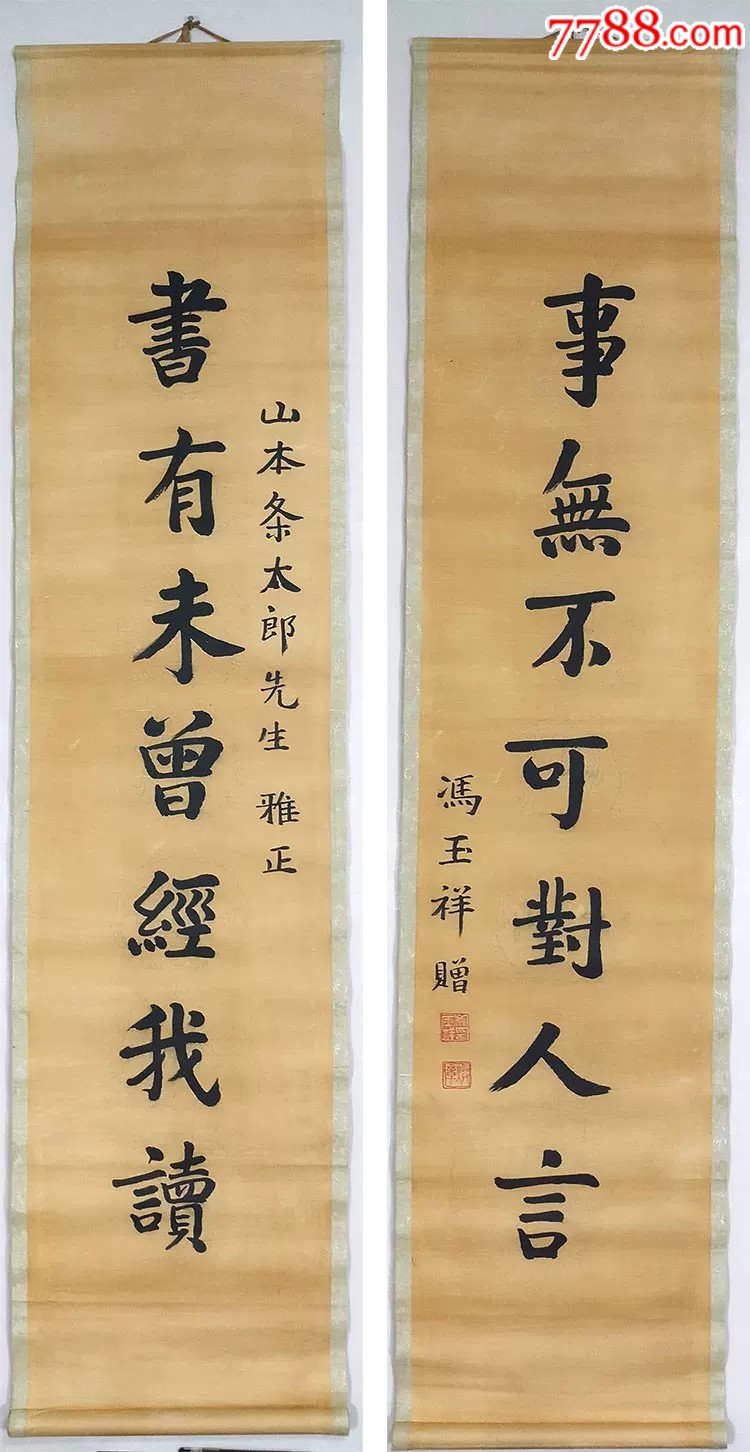 7788.com
事無不可對人言
馮玉祥贈
山本条太郎先生 雅正
書有未曾經我讀